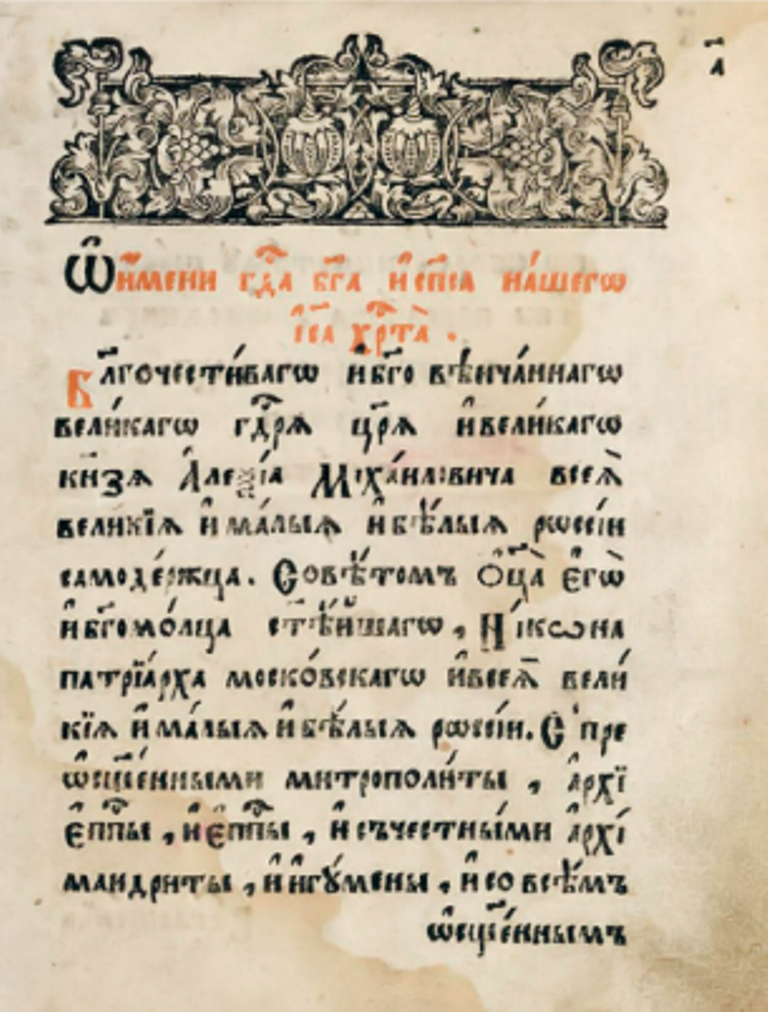 а҃
Ѿи́мени гдⷭ҇а бг҃а и҆ сп҃са на́шегѡ
і҆с҃а хрⷭ҇та̀ .
Бл҃гочести́вагѡ и҆ бг҃о вѣнча́ннагѡ
вели́кагѡ гдⷭ҇рѧ цр҃ѧ и҆ вели́кагѡ
кн҃зѧ А҆леѯі́а Міха́иловича всеѧ̀
вели́кїѧ и҆ ма́лыѧ и҆ бѣ́лыѧ рѡсі́и
самоде́ржца . Совѣ́томъ Ѻ҆ц҃а̀ є҆гѡ̀
и҆ бг҃омо́лца ст҃ѣ́йшагѡ , Ні́кѡна
патрїа́рха моско́вскагѡ и҆ всеѧ̀ вели́
кїѧ и҆ ма́лыѧ и҆ бѣ́лыѧ рѡсі́и . С̾ пре
ѡ҆сщ҃е́нными митрополи́ты , а҆рхї
є҆пⷭ҇пы , и҆ є҆пⷭ҇пы , и҆ съ честны́ми а҆рхї
мандриты , и҆ и҆гꙋ́мены , и҆ со всѣ́мъ
ѡ҆сщ҃е́ннымъ